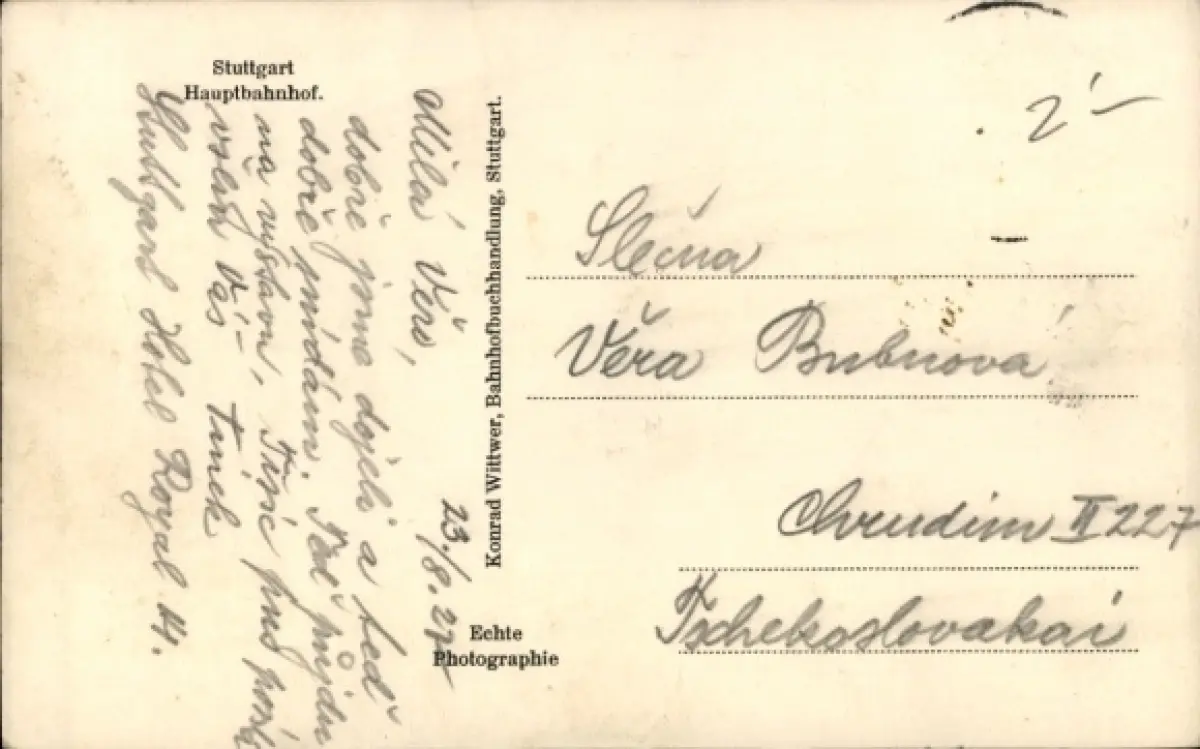 Stuttgart
Hauptbahnhof.
Milá Věro,
dobře jsme dojeli a teď
dobře snídám. Teď půjdu
na výstavu. Tisíc pus posílá
všem Vás
Stuttgart Hotel Royal 14.
23./8. 27
Konrad Wittwer, Bahnhofbuchhandlung, Stuttgart.
Echte
Photographie
2'–
Slečna
Věra Bubnová
Chrudim II 227
Tschekoslovakai